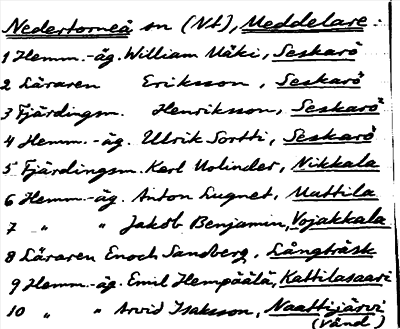 Nedertorneå sn (Nt), Meddelare:
1 Hemm.-äg. William Mäki, Seskarö
2 Läraren Eriksson, Seskarö
3 Fjärdingsm. Henriksson, Seskarö
4 Hemm.-äg. Ulrik Sortti, Seskarö
5 Fjärdingsm. Karl Uolinder, Nikkala
6 Hemm.-äg. Anton Lugnet, Mattila
7 " " Jakob Benjamin, Vojakkala
8 Läraren Enoch Sandberg, Långträsk
9 Hemm.-äg. Emil Hempäälä, Kattilasaari
10 " " Arvid Isaksson, Naattijärvi
(Vänd)